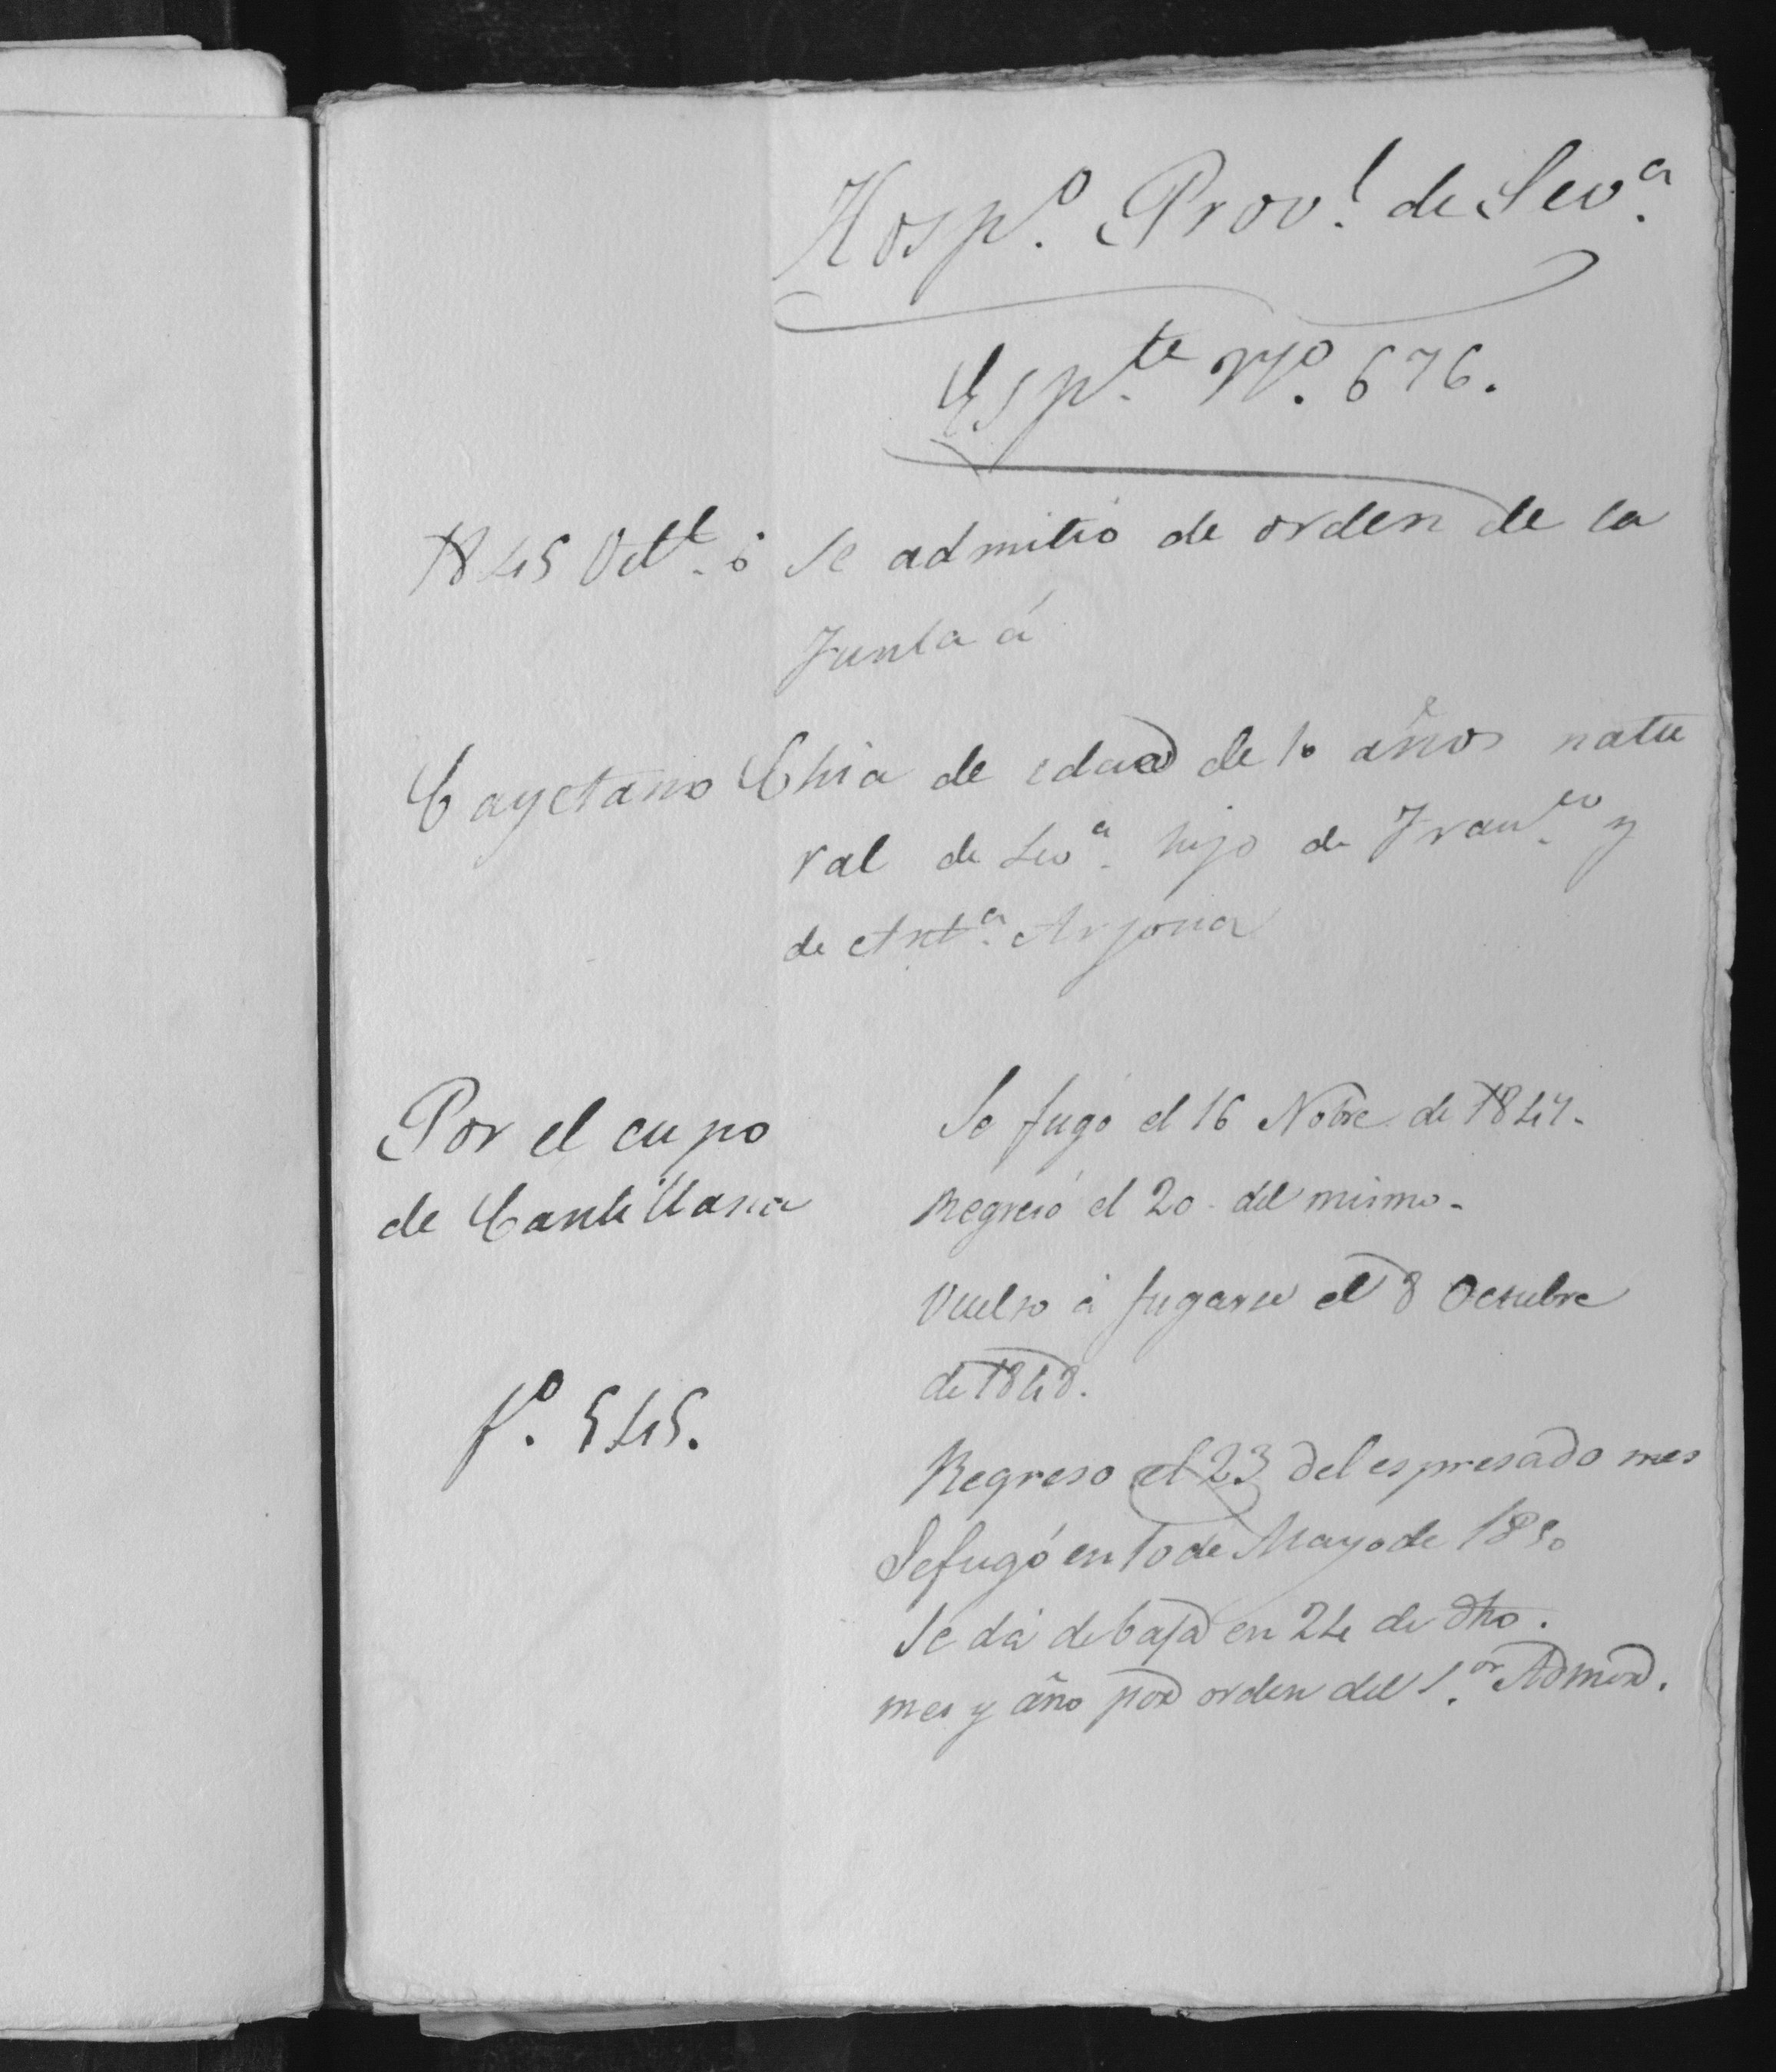 Hosp.º Prov.l de Sev.ª
Esp.te Nº. 676.
1845 Oct.e 6 Se admitio de orden de la
Junta á
Cayetano Chia de edad de 10 años natu
ral de Sev.ª hijo de Fran.co y
de Ant.ª Arjona
Por el cupo
de Cantillana
fº. 545.
Se fugó el 16 Nobre de 1847.
Regresó el 20 del mismo.
Vuelto á fugarse el 8 Octubre
de 1848.
Regreso el 23 del espresado mes
Se fugó en 10 de Mayo de 1850
Se dá de baja en 24 de dho.
mes y año por orden del S.or Admor.